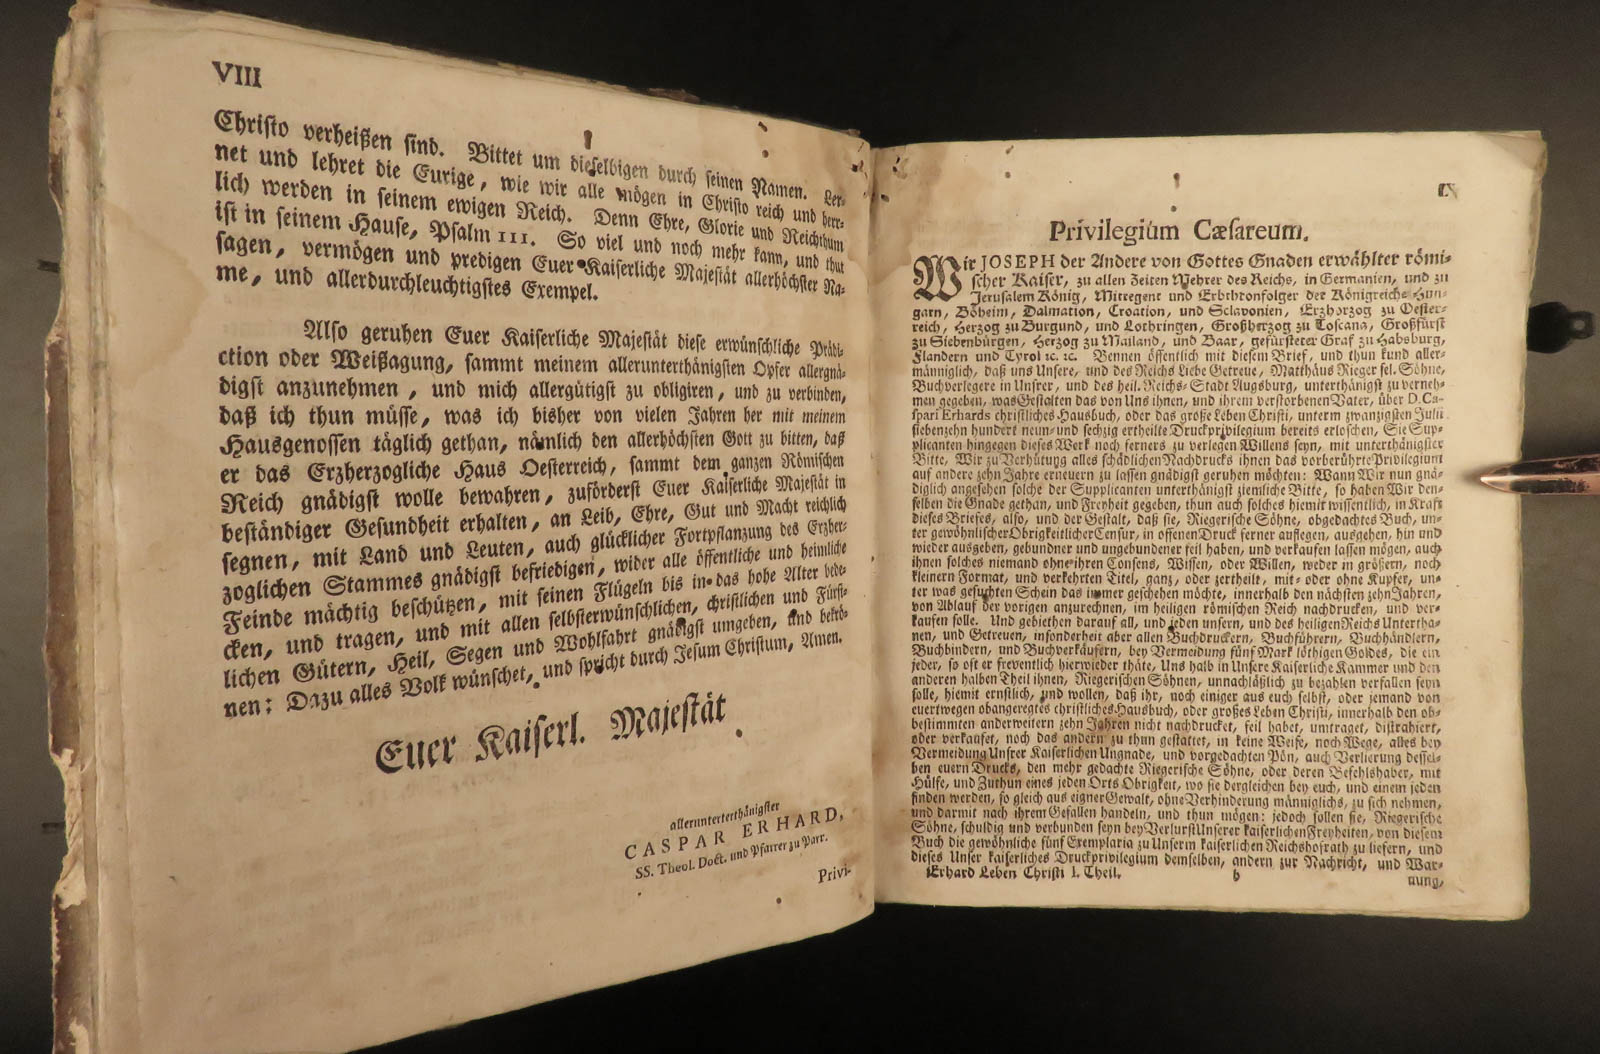 VIII
Christo verheißen sind. Bittet um dieselbigen durch seinen Namen. Ler-
net und lehret die Eurige, wie wir alle mögen in Christo reich und herr-
lich werden in seinem ewigen Reich. Denn Ehre, Glorie und Reichthum
ist in seinem Hause, Psalm 111. So viel und noch mehr kann, und thut
sagen, vermögen und predigen Euer Kaiserliche Majestät allerhöchster Na-
me, und allerdurchleuchtigstes Exempel.
Also geruhen Euer Kaiserliche Majestät diese erwünschliche Prädi-
ction oder Weißagung, sammt meinem allerunterthänigsten Opfer allergnä-
digst anzunehmen, und mich allergütigst zu obligiren, und zu verbinden,
daß ich thun müsse, was ich bisher von vielen Jahren her mit meinem
Hausgenossen täglich gethan, nämlich den allerhöchsten Gott zu bitten, daß
er das Erzherzogliche Haus Oesterreich, sammt dem ganzen Römischen
Reich gnädigst wolle bewahren, zuförderst Euer Kaiserliche Majestät in
beständiger Gesundheit erhalten, an Leib, Ehre, Gut und Macht reichlich
segnen, mit Land und Leuten, auch glücklicher Fortpflanzung des Erzher-
zoglichen Stammes gnädigst befriedigen, wider alle öffentliche und heimliche
Feinde mächtig beschützen, mit seinen Flügeln bis in das hohe Alter bede-
cken, und tragen, und mit allen selbsterwünschlichen, christlichen und Fürst-
lichen Gütern, Heil, Segen und Wohlfahrt gnädigst umgeben, und bekrö-
nen: Dazu alles Volk wünschet, und spricht durch Jesum Christum, Amen.
Euer Kaiserl. Majestät
allerunterterthänigster
CASPAR ERHARD,
SS. Theol. Doct. und Pfarrer zu Parr.
Privi-
IX
Privilegium Cæsareum.
Wir JOSEPH der Andere von Gottes Gnaden erwählter römi-
scher Kaiser, zu allen Zeiten Mehrer des Reichs, in Germanien, und zu
Jerusalem König, Mitregent und Erbthronfolger der Königreiche Hun-
garn, Böheim, Dalmation, Croation, und Sclavonien, Erzherzog zu Oester-
reich, Herzog zu Burgund, und Lothringen, Großherzog zu Toscana, Großfürst
zu Siebenbürgen, Herzog zu Mailand, und Baar, gefürsteter Graf zu Habsburg,
Flandern und Tyrol ꝛc. ꝛc. Bennen öffentlich mit diesem Brief, und thun kund aller-
männiglich, daß uns Unsere, und des Reichs Liebe Getreue, Matthäus Rieger sel. Söhne,
Buchverlegere in Unsrer, und des heil. Reichs-Stadt Augsburg, unterthänigst zu verneh-
men gegeben, was Gestalten das von Uns ihnen, und ihrem verstorbenen Vater, über D. Ca-
spari Erhards christliches Hausbuch, oder das große Leben Christi, unterm zwanzigsten Julii
siebenzehn hundert neun- und sechzig ertheilte Druckprivilegium bereits erloschen, Sie Sup-
plicanten hingegen dieses Werk noch ferners zu verlegen Willens seyn, mit unterthänigster
Bitte, Wir zu Verhütuyg alles schädlichen Nachdrucks ihnen das vorberührte Privilegium
auf andere zehn Jahre erneuern zu lassen gnädigst geruhen möchten: Wann Wir nun gnä-
diglich angesehen solche der Supplicanten unterthänigst ziemliche Bitte, so haben Wir den-
selben die Gnade gethan, und Freyheit gegeben, thun auch solches hiemit wissentlich, in Kraft
dieses Briefes, also, und der Gestalt, daß sie, Riegerische Söhne, obgedachtes Buch, un-
ter gewöhnlicher Obrigkeitlicher Censur, in offenen Druck ferner auflegen, ausgehen, hin und
wieder ausgeben, gebundner und ungebundener feil haben, und verkaufen lassen mögen, auch
ihnen solches niemand ohne ihren Consens, Wissen, oder Willen, weder in größern, noch
kleinern Format, und verkehrten Titel, ganz, oder zertheilt, mit- oder ohne Kupfer, un-
ter was gesuchten Schein das immer geschehen möchte, innerhalb den nächsten zehn Jahren,
von Ablauf der vorigen anzurechnen, im heiligen römischen Reich nachdrucken, und ver-
kaufen solle. Und gebiethen darauf all, und jeden unsern, und des heiligen Reichs Untertha-
nen, und Getreuen, insonderheit aber allen Buchdruckern, Buchführern, Buchhändlern,
Buchbindern, und Buchverkäufern, bey Vermeidung fünf Mark löthigen Goldes, die ein
jeder, so oft er freventlich hierwieder thäte, Uns halb in Unsere Kaiserliche Kammer und den
anderen halben Theil ihnen, Riegerischen Söhnen, unnachläßlich zu bezahlen verfallen seyn
solle, hiemit ernstlich, und wollen, daß ihr, noch einiger aus euch selbst, oder jemand von
euertwegen obangeregtes christliches Hausbuch, oder großes Leben Christi, innerhalb den ob-
bestimmten anderweitern zehn Jahren nicht nachdrucket, feil habet, umtraget, distrahiert,
oder verkaufet, noch das andern zu thun gestattet, in keine Weise, noch Wege, alles bey
Vermeidung Unsrer Kaiserlichen Ungnade, und vorgedachten Pön, auch Verlierung dessel-
ben euern Drucks, den mehr gedachte Riegerische Söhne, oder deren Befehlshaber, mit
Hülfe, und Zuthun eines jeden Orts Obrigkeit, wo sie dergleichen bey euch, und einem jeden
finden werden, so gleich aus eigner Gewalt, ohne Verhinderung männiglichs, zu sich nehmen,
und darmit nach ihrem Gefallen handeln, und thun mögen: jedoch sollen sie, Riegerische
Söhne, schuldig und verbunden seyn bey Verlurst Unserer kaiserlichen Freyheiten, von diesem
Buch die gewöhnliche fünf Exemplaria zu Unserm kaiserlichen Reichshofrath zu liefern, und
dieses Unser kaiserliches Druckprivilegium demselben, andern zur Nachricht, und War-
Erhard Leben Christi I. Theil. b nung,